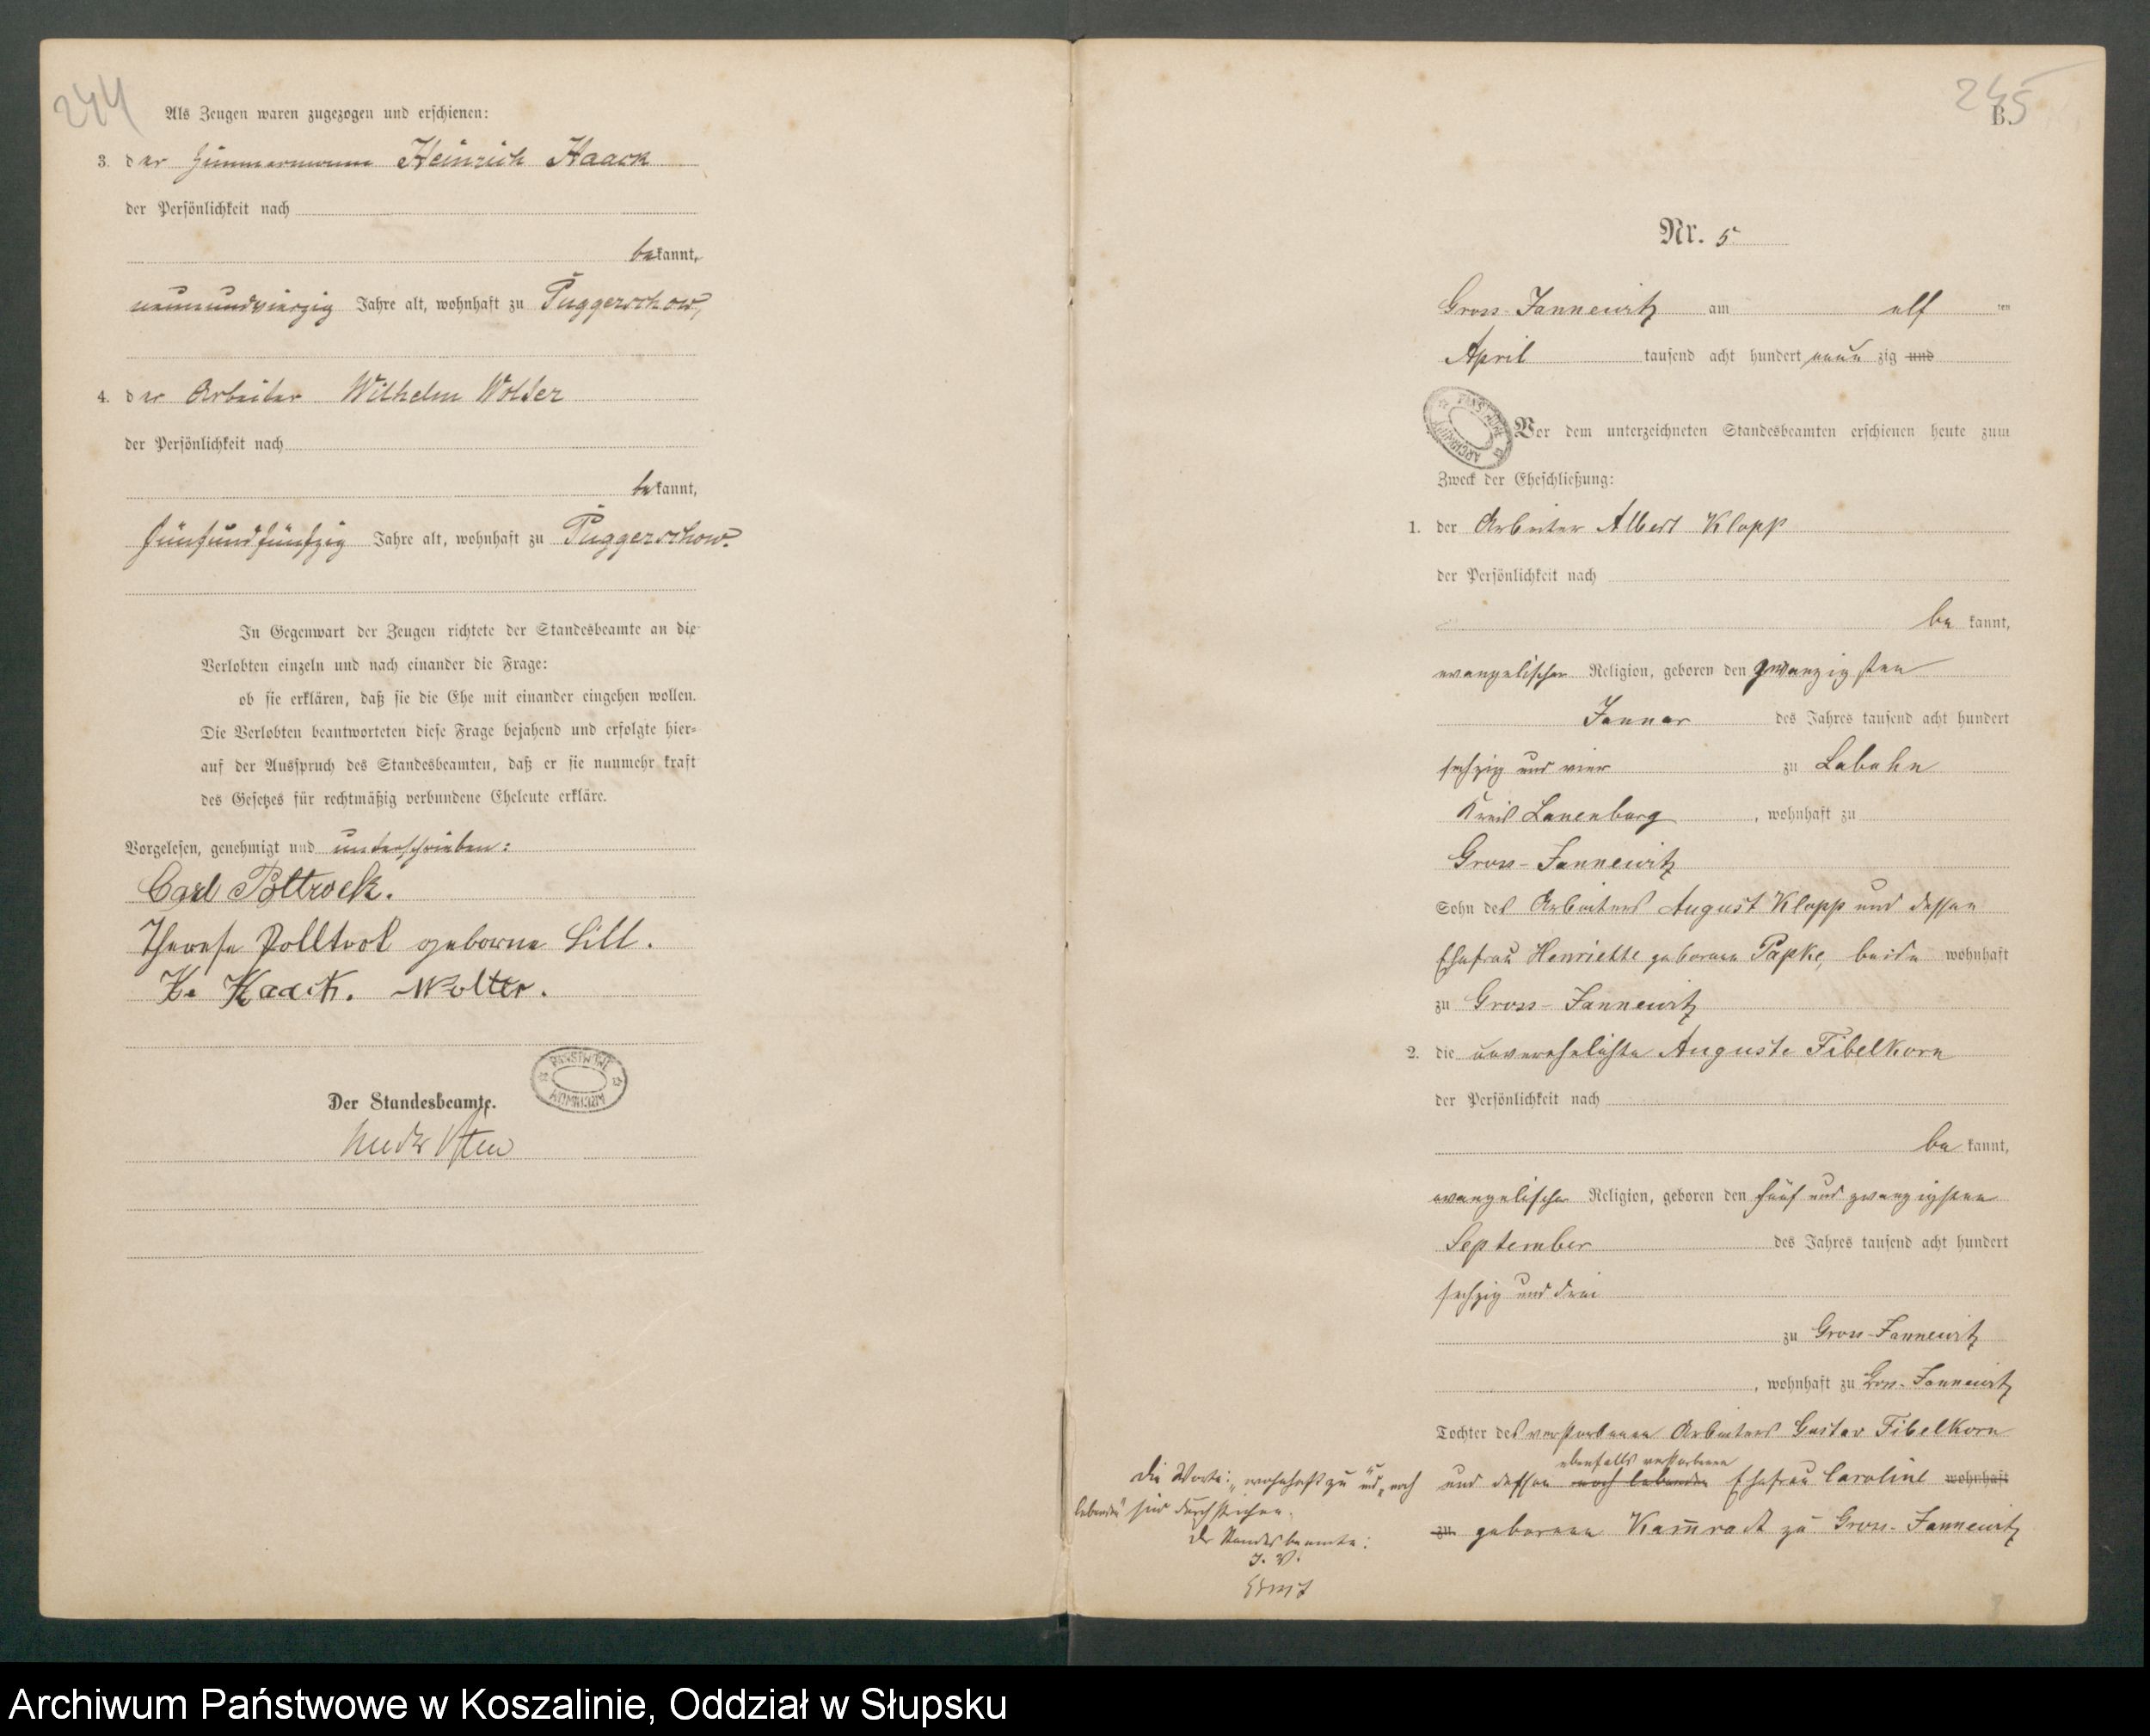 244
Als Zeugen waren zugezogen und erschienen:
3. der Zimmermann Heinrich Haack
der Persönlichkeit nach
bekannt,
neunundvierzig Jahre alt, wohnhaft zu Puggerschow,
4. der Arbeiter Wilhelm Wolter
der Persönlichkeit nach
bekannt,
fünfundfünfzig Jahre alt, wohnhaft zu Puggerschow.
In Gegenwart der Zeugen richtete der Standesbeamte an die
Verlobten einzeln und nach einander die Frage:
ob sie erklären, daß sie die Ehe mit einander eingehen wollen.
Die Verlobten beantworteten diese Frage bejahend und erfolgte hier-
auf der Ausspruch des Standesbeamten, daß er sie nunmehr kraft
des Gesetzes für rechtmäßig verbundene Eheleute erkläre.
Vorgelesen, genehmigt und unterschrieben:
Carl Poltrock.
Therese Polltrok geborne Sill.
H. Haack. Wolter.
Der Standesbeamte.
245
B.
Nr. 5
Gross-Jannewitz am elf ten
April tausend acht hundert neun zig und
Vor dem unterzeichneten Standesbeamten erschienen heute zum
Zweck der Eheschließung:
1. der Arbeiter Albert Klopp
der Persönlichkeit nach
be kannt,
evangelischer Religion, geboren den zwanzigsten
Januar des Jahres tausend acht hundert
sechzig und vier zu Labuhn
Kreis Lauenburg, wohnhaft zu
Gross-Jannewitz
Sohn des Arbeiters August Klopp und dessen
Ehefrau Henriette geborene Papke, beide wohnhaft
zu Gross-Jannewitz
2. die unverehelichte Auguste Fibelkorn
der Persönlichkeit nach
be kannt,
evangelischer Religion, geboren den fünf und zwanzigsten
September des Jahres tausend acht hundert
sechzig und drei
zu Gross-Jannewitz
, wohnhaft zu Gross-Jannewitz
Tochter des verstorbenen Arbeiters Gustav Fibelkorn
ebenfalls verstorbenen
und dessen noch lebenden Ehefrau Caroline wohnhaft
zu geborene Kam̄radt zu Gross-Jannewitz
Die Worte: „wohnhaft zu“ und „noch
lebenden“ sind durchstrichen.
Der Standesbeamte:
I. V.
Archiwum Państwowe w Koszalinie, Oddział w Słupsku